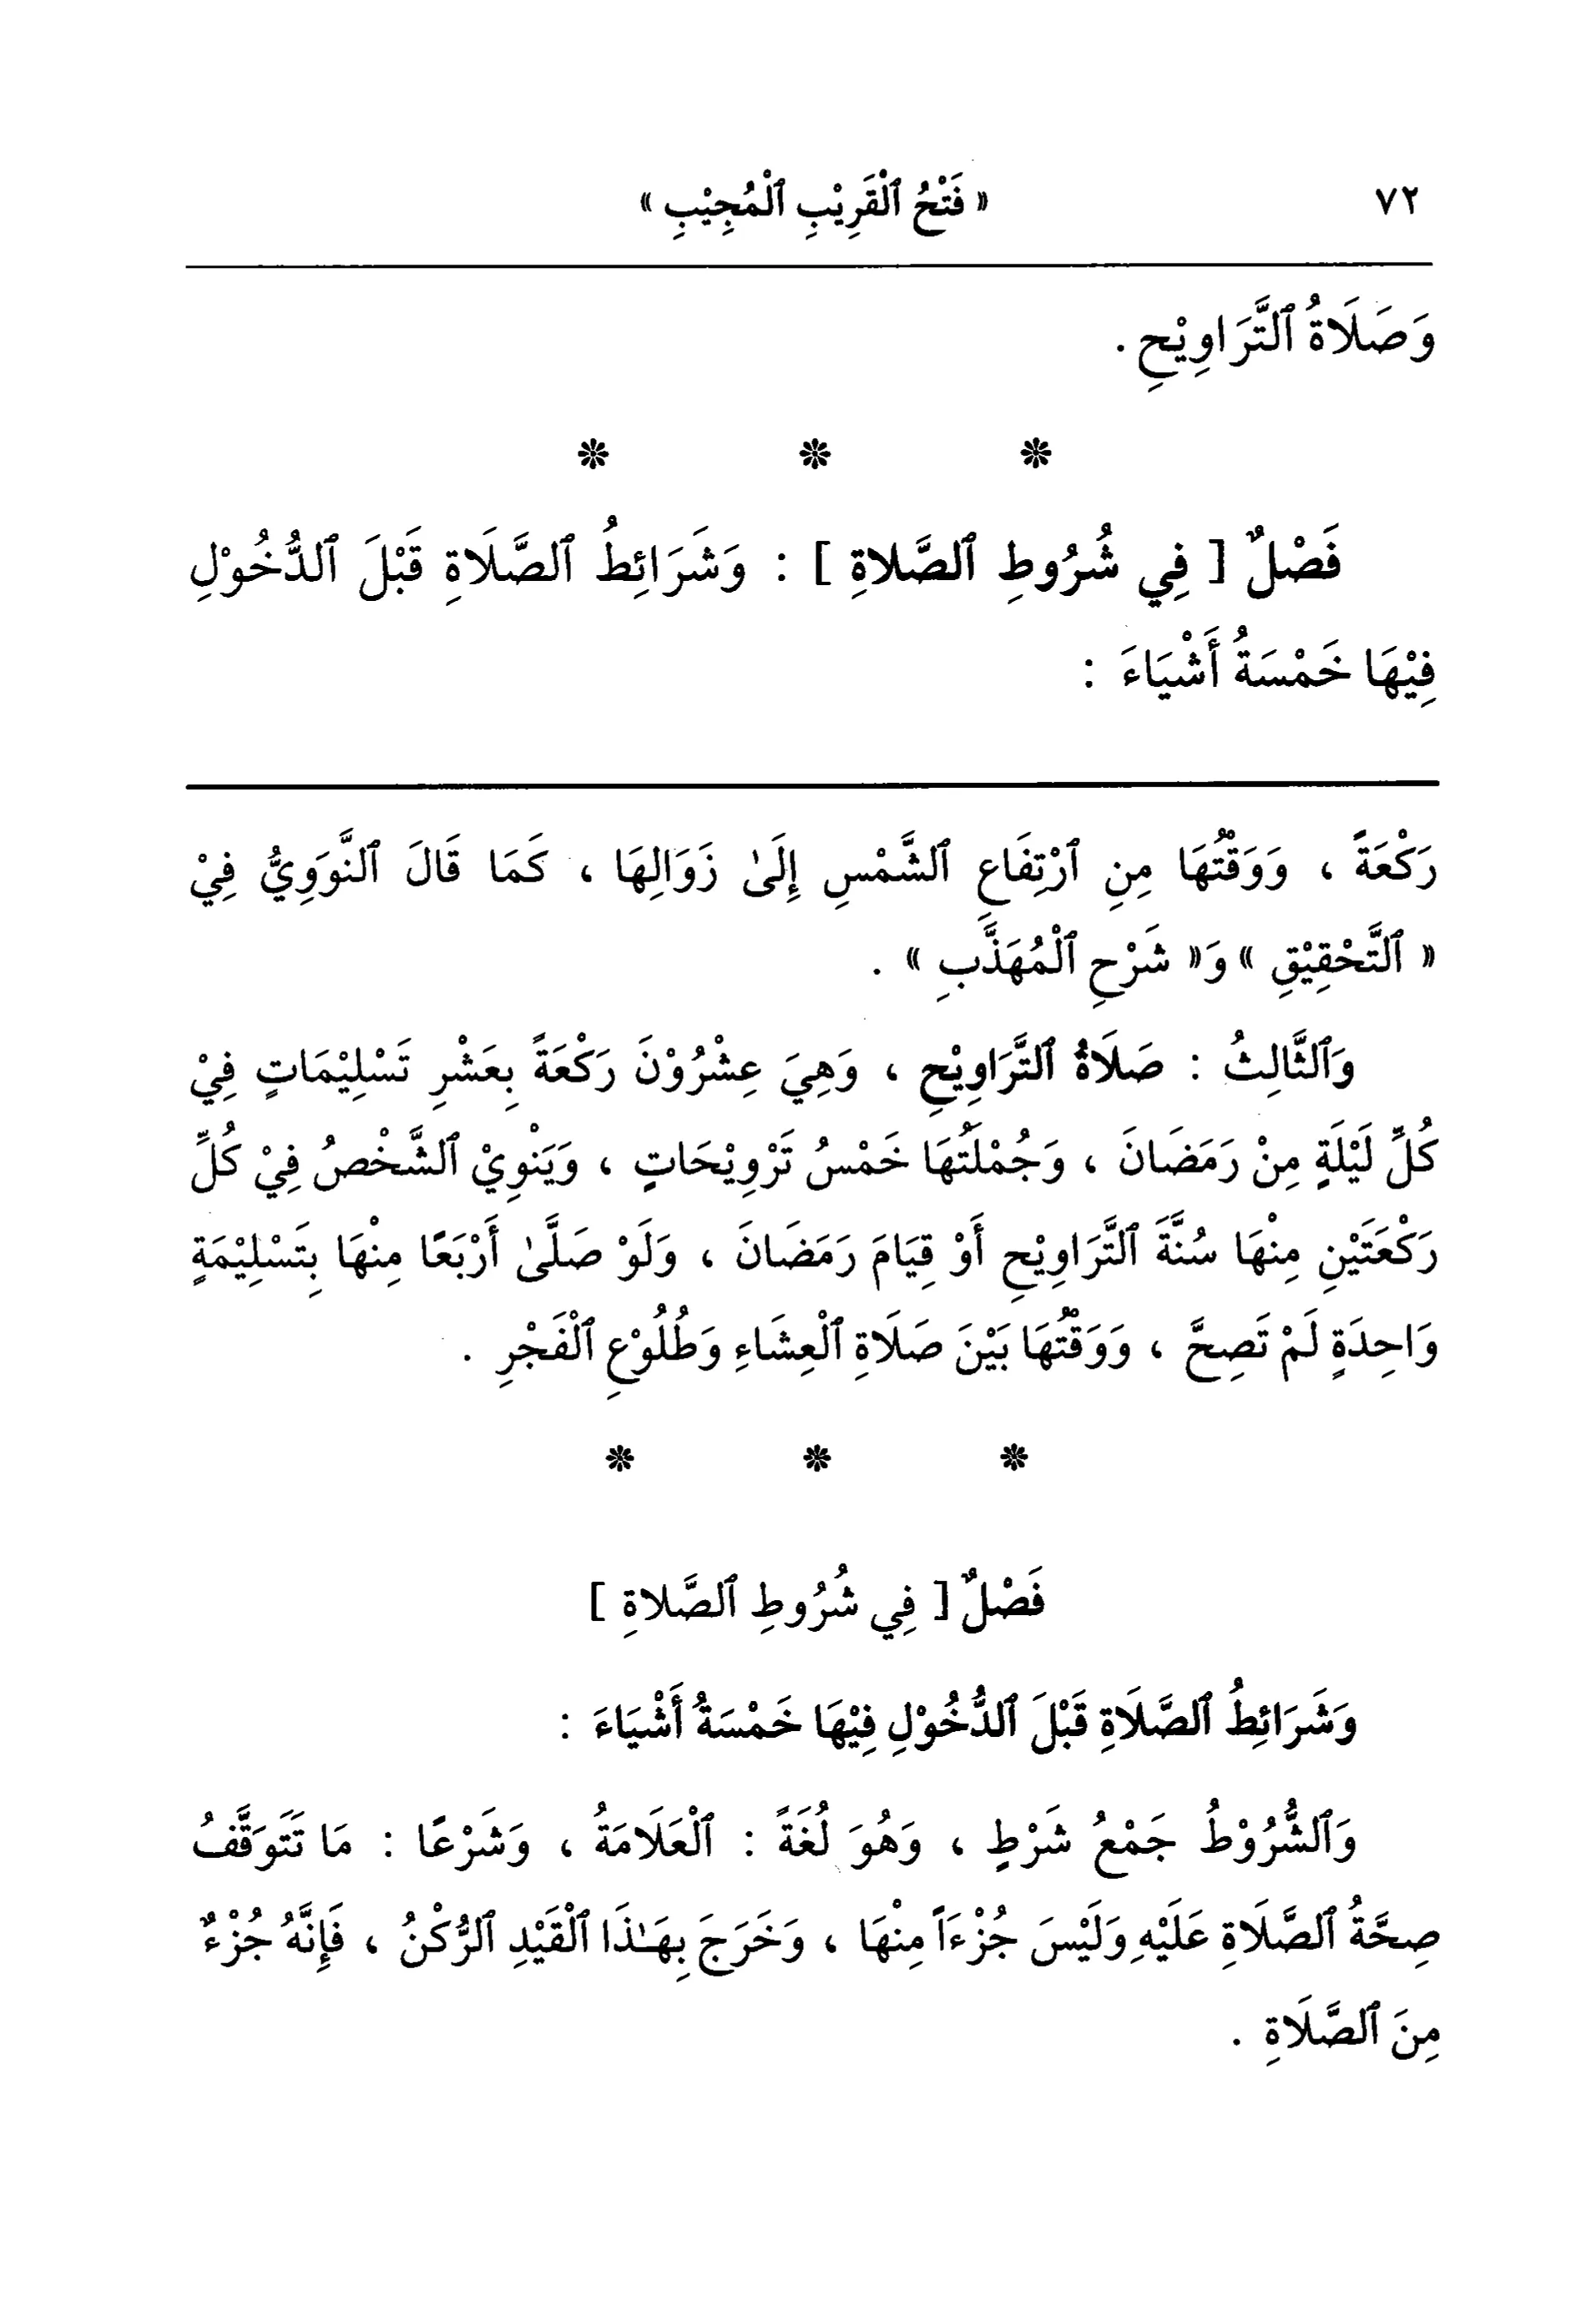 ٧٢ « فَتْحُ ٱلْقَرِيْبِ ٱلْمُجِيْبِ »
وَصَلَاةُ ٱلتَّرَاوِيْحِ .
فَصْلٌ [ فِي شُرُوطِ ٱلصَّلاةِ ] : وَشَرَائِطُ ٱلصَّلَاةِ قَبْلَ ٱلدُّخُوْلِ
فِيْهَا خَمْسَةُ أَشْيَاءَ :
رَكْعَةً ، وَوَقْتُهَا مِنِ ٱرْتِفَاعِ ٱلشَّمْسِ إِلَىٰ زَوَالِهَا ، كَمَا قَالَ ٱلنَّوَوِيُّ فِيْ
« ٱلتَّحْقِيْقِ » وَ« شَرْحِ ٱلْمُهَذَّبِ » .
وَٱلثَّالِثُ : صَلَاةُ ٱلتَّرَاوِيْحِ ، وَهِيَ عِشْرُوْنَ رَكْعَةً بِعَشْرِ تَسْلِيْمَاتٍ فِيْ
كُلِّ لَيْلَةٍ مِنْ رَمَضَانَ ، وَجُمْلَتُهَا خَمْسُ تَرْوِيْحَاتٍ ، وَيَنْوِيْ ٱلشَّخْصُ فِيْ كُلِّ
رَكْعَتَيْنِ مِنْهَا سُنَّةَ ٱلتَّرَاوِيْحِ أَوْ قِيَامَ رَمَضَانَ ، وَلَوْ صَلَّىٰ أَرْبَعًا مِنْهَا بِتَسْلِيْمَةٍ
وَاحِدَةٍ لَمْ تَصِحَّ ، وَوَقْتُهَا بَيْنَ صَلَاةِ ٱلْعِشَاءِ وَطُلُوْعِ ٱلْفَجْرِ .
فَصْلٌ [ فِي شُرُوطِ ٱلصَّلاةِ ]
وَشَرَائِطُ ٱلصَّلَاةِ قَبْلَ ٱلدُّخُوْلِ فِيْهَا خَمْسَةُ أَشْيَاءَ :
وَٱلشُّرُوْطُ جَمْعُ شَرْطٍ ، وَهُوَ لُغَةً : ٱلْعَلَامَةُ ، وَشَرْعًا : مَا تَتَوَقَّفُ
صِحَّةُ ٱلصَّلَاةِ عَلَيْهِ وَلَيْسَ جُزْءَاً مِنْهَا ، وَخَرَجَ بِهَـٰذَا ٱلْقَيْدِ ٱلرُّكْنُ ، فَإِنَّهُ جُزْءٌ
مِنَ ٱلصَّلَاةِ .